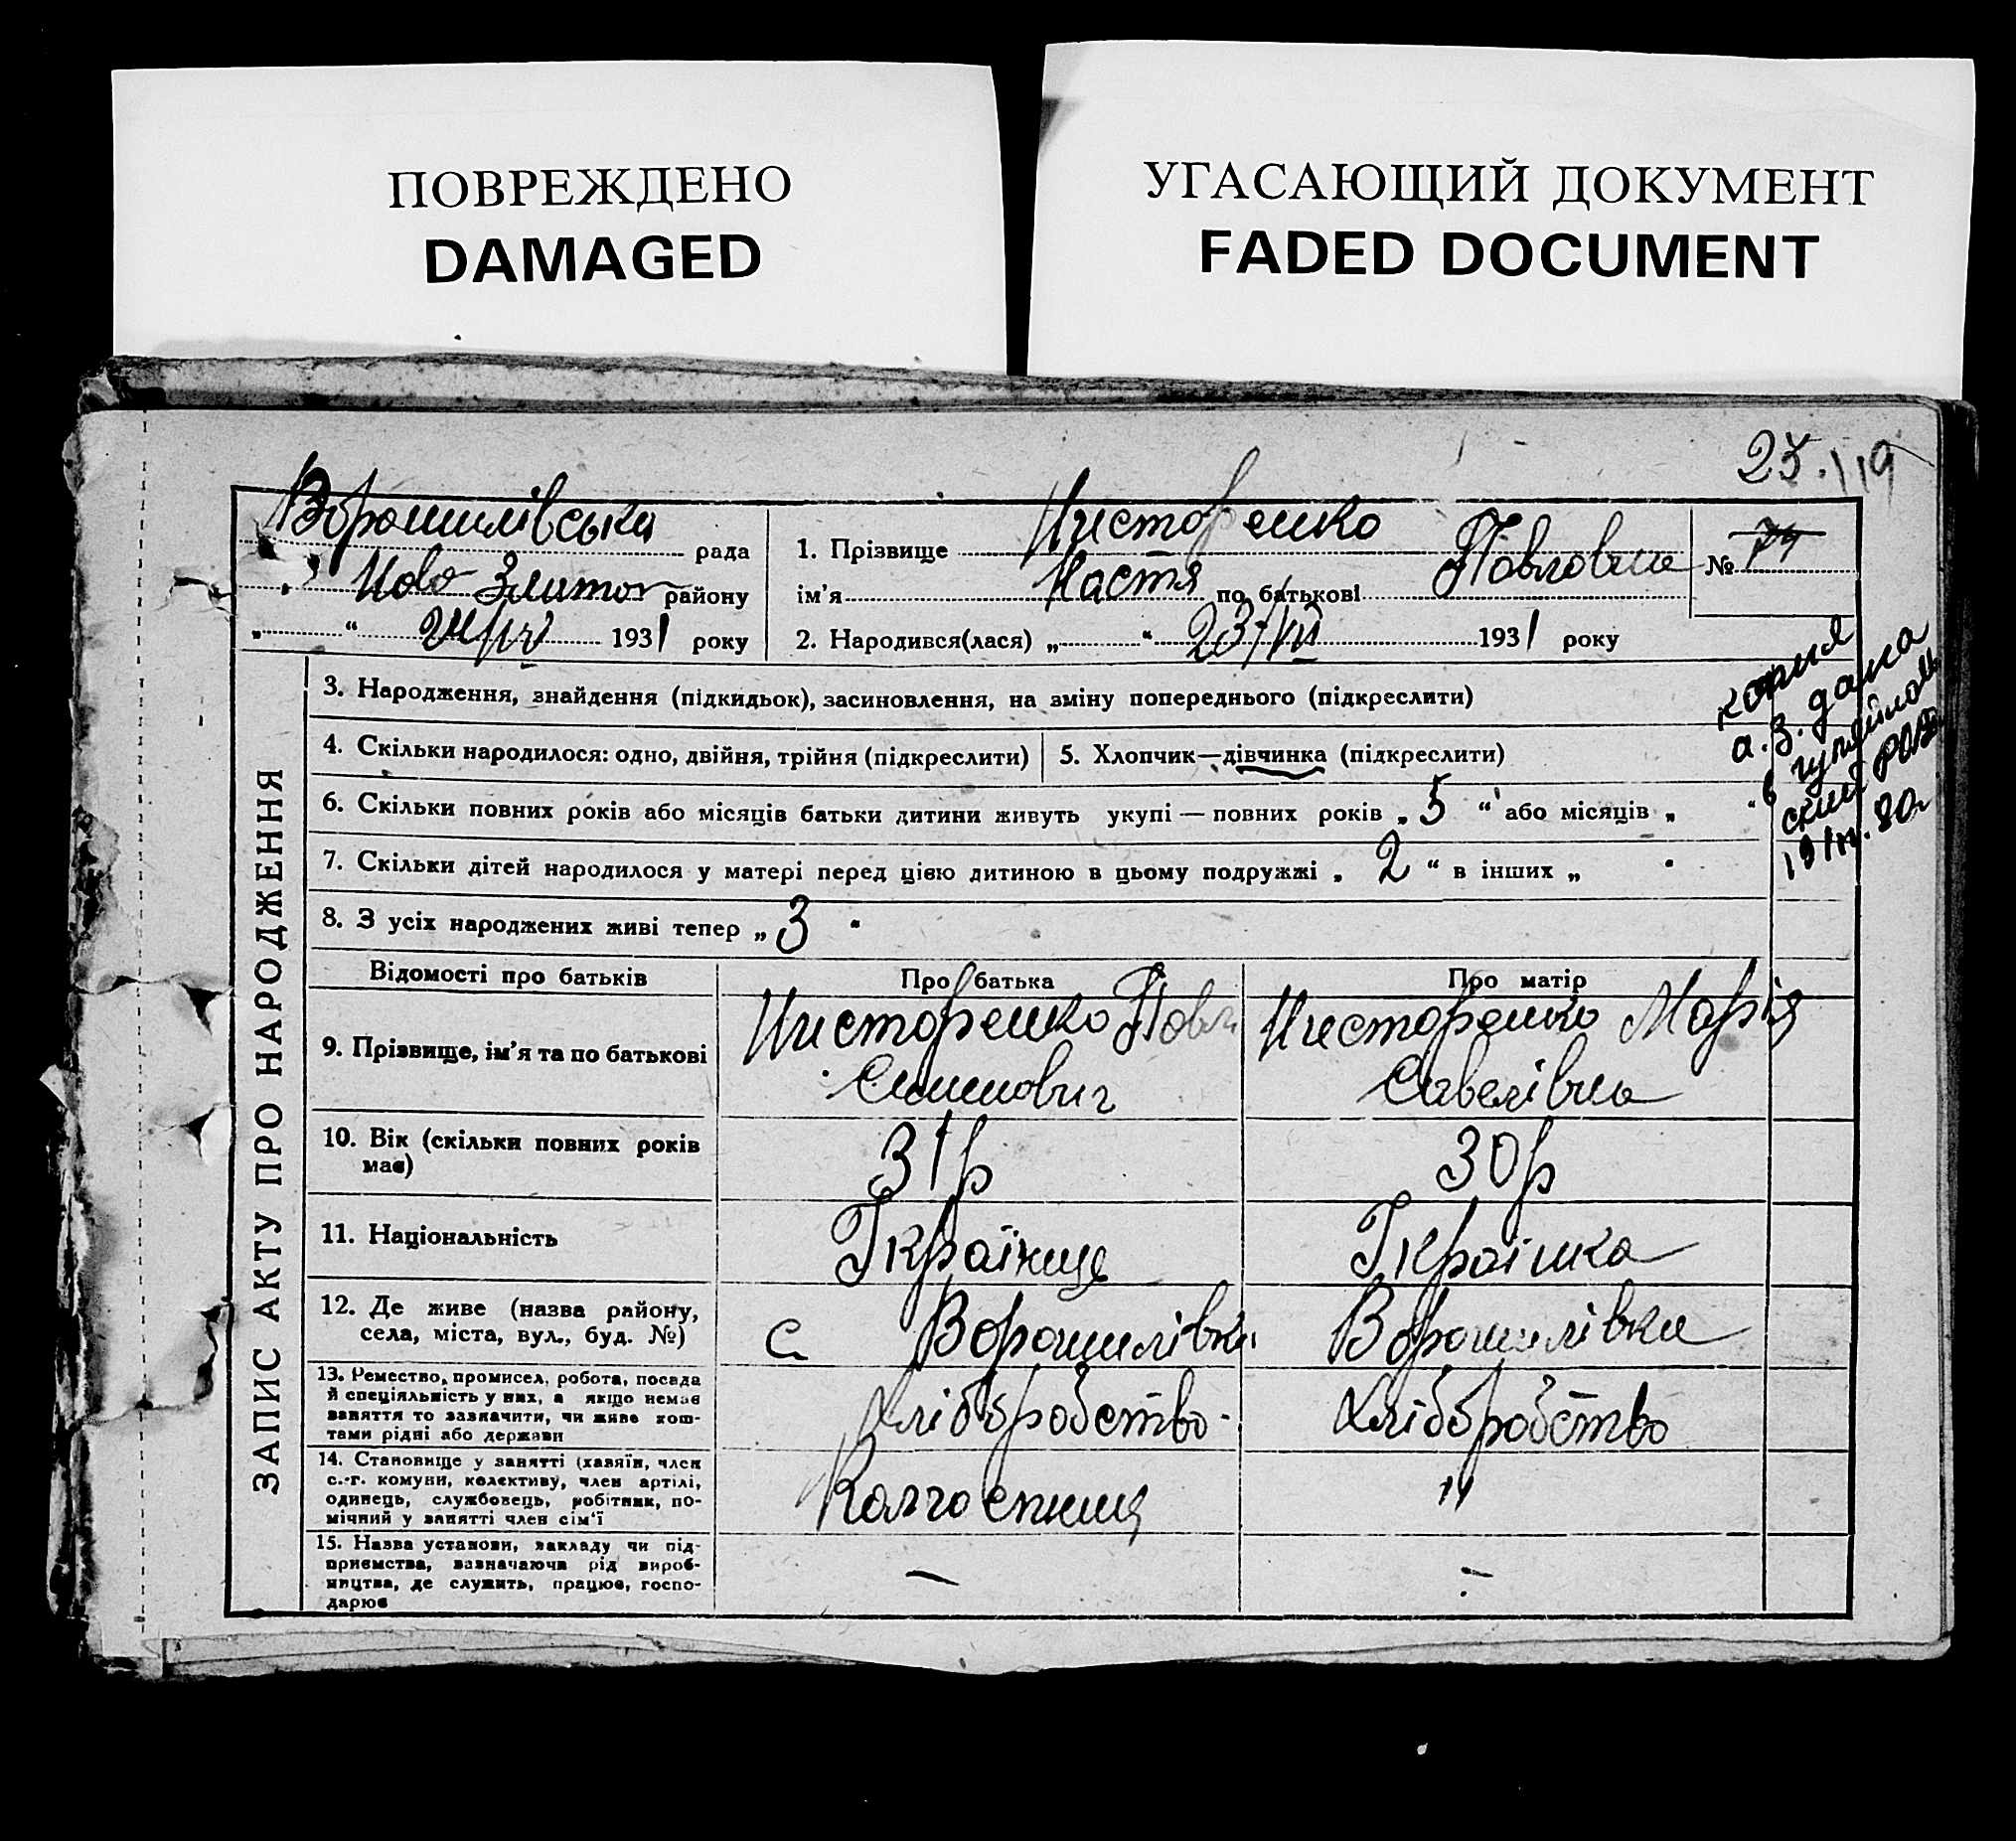 ПОВРЕЖДЕНО
DAMAGED
УГАСАЮЩИЙ ДОКУМЕНТ
FADED DOCUMENT
Ворошилівська рада
Ново Злитоп району
„ “ 1931 року
1. Прізвище Нисторенко
ім'я Настя по батькові Повловна
№ 74
2. Народився(лася) „ “ 23/VII 1931 року
ЗАПИС АКТУ ПРО НАРОДЖЕННЯ
3. Народження, знайдення (підкидьок), засиновлення, на зміну попереднього (підкреслити)
4. Скільки народилося: одно, двійня, трійня (підкреслити)
5. Хлопчик—дівчинка (підкреслити)
6. Скільки повних років або місяців батьки дитини живуть укупі — повних років „ 5 “ або місяців „ “
7. Скільки дітей народилося у матері перед цією дитиною в цьому подружжі „ 2 “ в інших „
8. З усіх народжених живі тепер „ 3 “
копия
а.з. дана
в гуляйполь
ский
80г
Відомості про батьків
Про батька
Про матір
9. Прізвище, ім'я та по батькові
Нисторенко Повл
Семенович
Нисторенко Марія
Савелівна
10. Вік (скільки повних років
має)
31р
30р
11. Національність
Українець
Українка
12. Де живе (назва району,
села, міста, вул., буд. №)
с Ворошилівка
Ворошилівка
13. Ремество, промисел, робота, посада
й спеціяльність у них, а якщо немає
заняття то зазначити, чи живе кош-
тами рідні або держави
Хліборобство
Хліборобство
14. Становище у занятті (хазяїн, член
с.-г. комуни, колективу, член артілі,
одинець, службовець, робітник, по-
мічний у занятті член сім'ї
Колгоспниця
"
15. Назва установи, закладу чи під-
приємства, зазначаючи рід вироб-
ництва, де служить, працює, госпо-
дарює
—
—